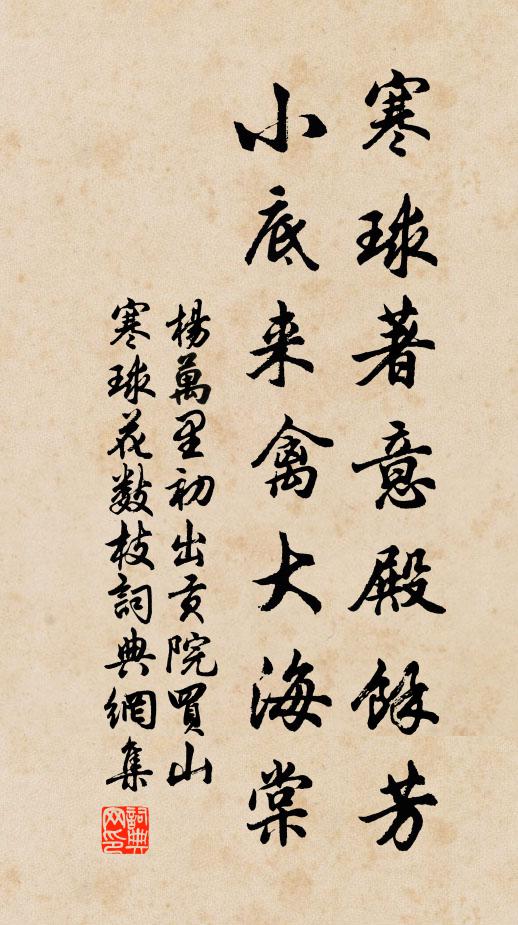 寒球著意殿餘芳
小底来禽大海棠
楊萬里初出贡院買山
寒球花数枝詞典網集
詞典网印